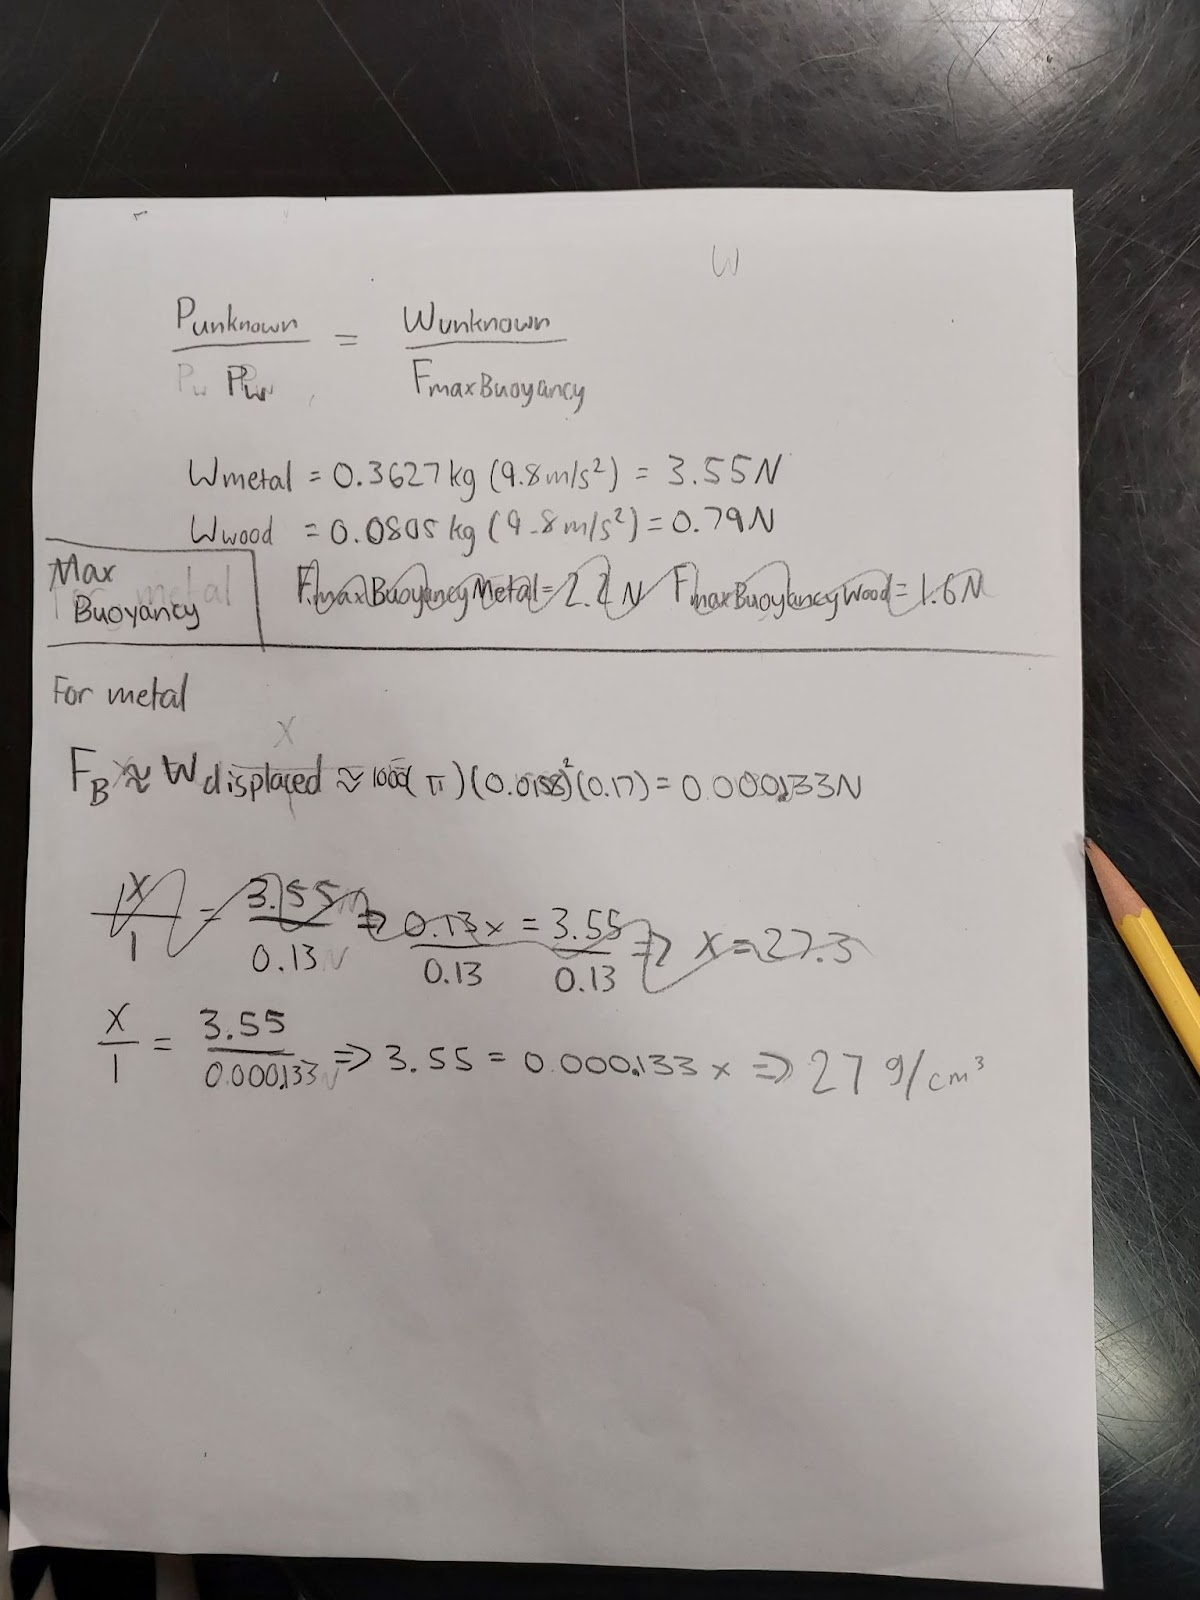 W
Punknown / Pw Pw = Wunknown / FmaxBuoyancy
Wmetal = 0.3627 kg (9.8 m/s²) = 3.55 N
Wwood = 0.0805 kg (9.8 m/s²) = 0.79 N
Max Buoyancy
FmaxBuoyancyMetal = 2.2 N FmaxBuoyancyWood = 1.6 N
For metal
X
FB ≈ Wdisplaced ≈ 1000(π)(0.0158)²(0.17) = 0.000133N
x/1 = 3.55/0.13N => 0.13x/0.13 = 3.55/0.13 => x = 27.3
x/1 = 3.55/0.000133N => 3.55 = 0.000133 x => 27 g/cm³